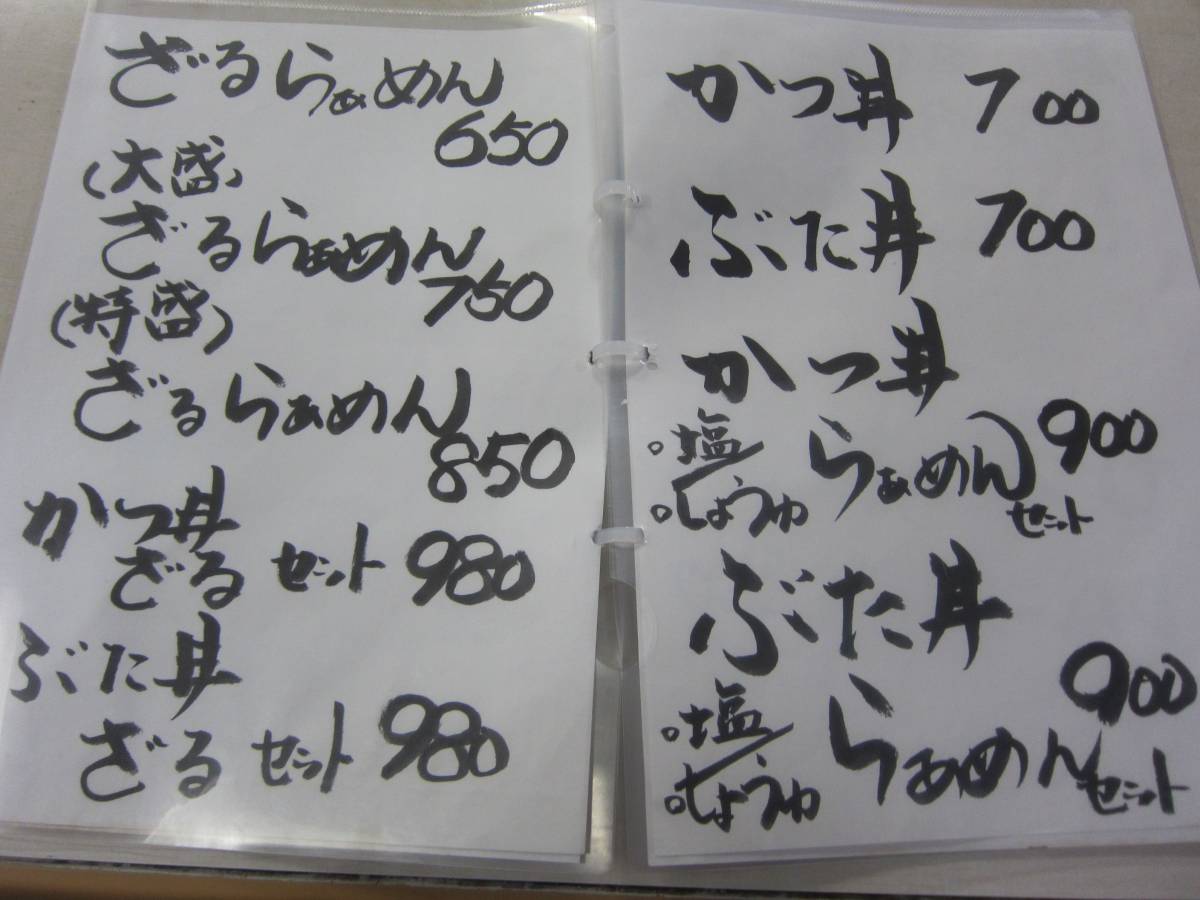 ざるらぁめん
650
(大盛)
ざるらぁめん
750
(特盛)
ざるらぁめん
850
かつ丼
ざる セット 980
ぶた丼
ざる セット 980
かつ丼 700
ぶた丼 700
かつ丼
。塩
。しょうゆ らぁめん 900
セット
ぶた丼
900
。塩
。しょうゆ らぁめん セット